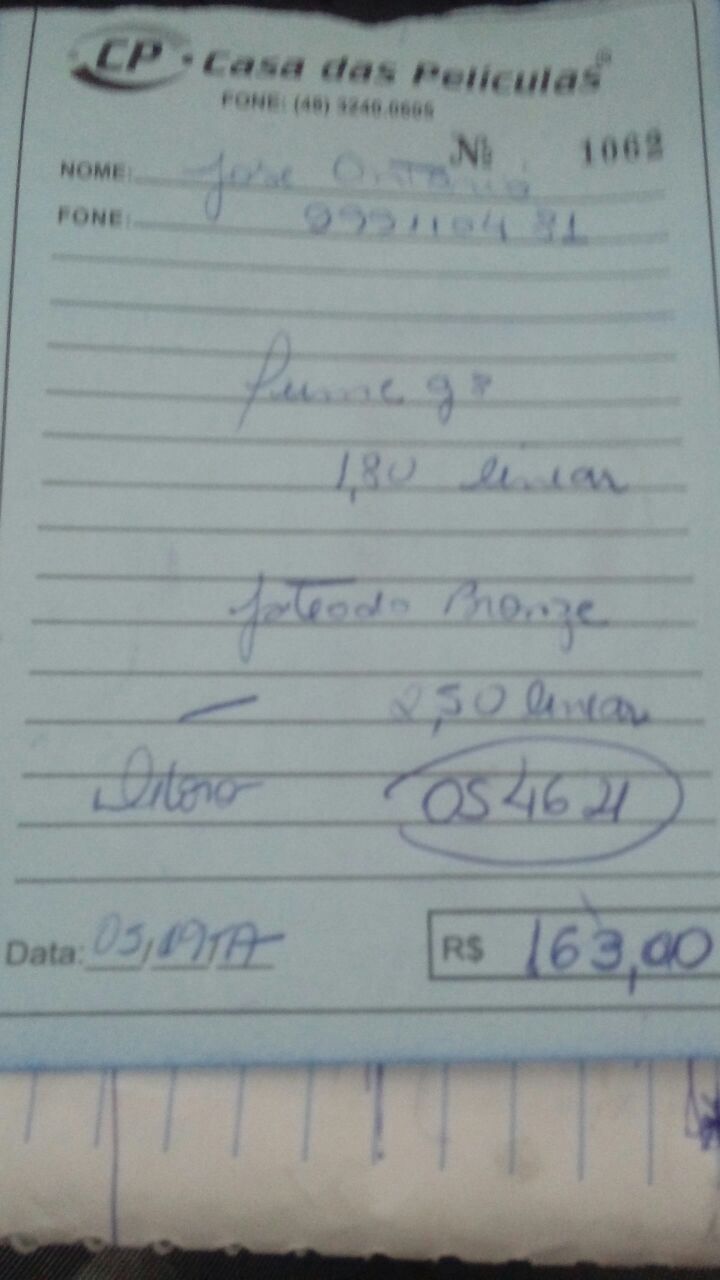 CP Casa das Películas®
FONE: (48) 3240.0605
Nº 1062
NOME: Jose
FONE: 999110481
fume g
1,80 linear
Jateado Bronze
— 2,50 linear
OS 4621
Data: 05/09/
R$ 163,00